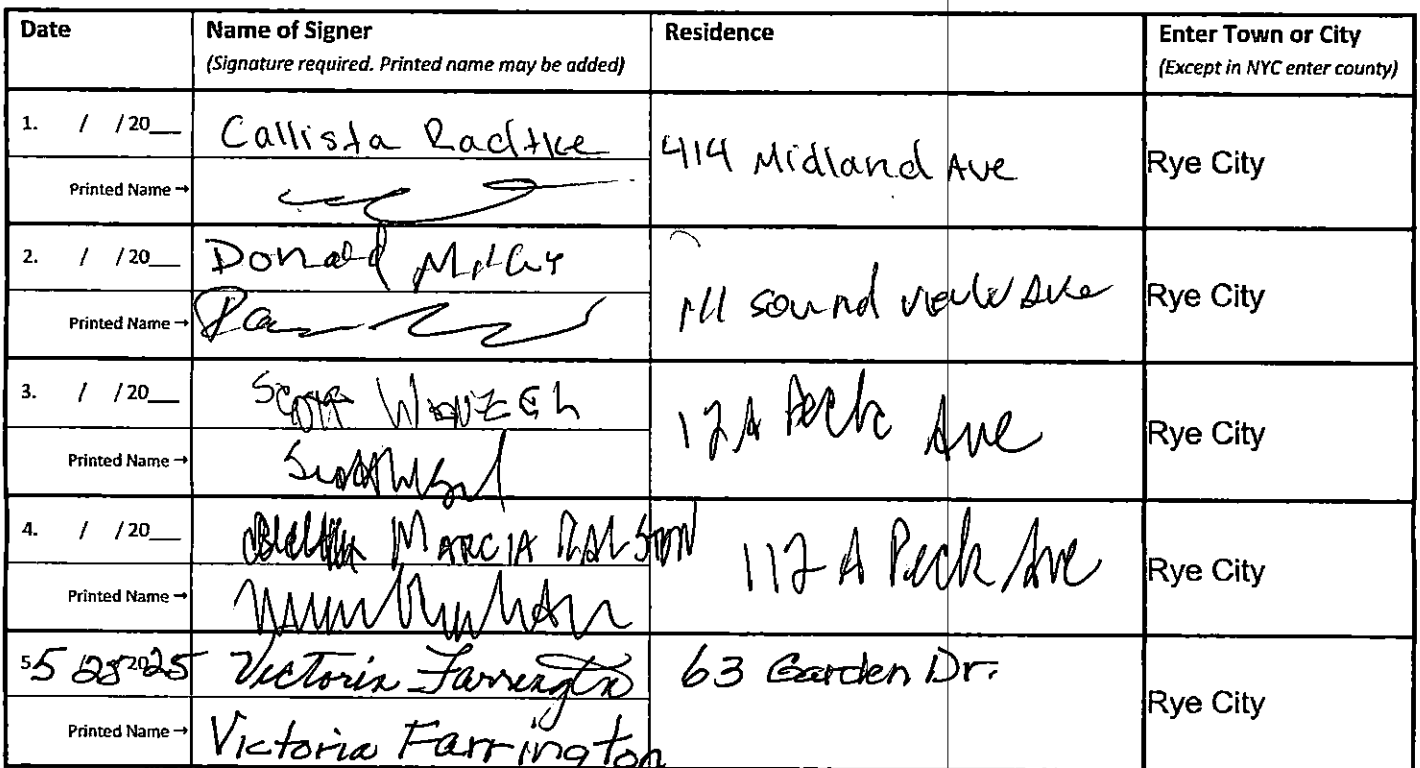 Date Name of Signer Residence Enter Town or City
(Signature required. Printed name may be added) (Except in NYC enter county)
1. / /20__ Callista Radtke 414 Midland Ave Rye City
Printed Name →
2. / /20__ Donald sound Ave Rye City
Printed Name →
3. / /20__ Scott Wenzel 12A Peck Ave Rye City
Printed Name →
4. / /20__ MARCIA RALSTON 112 A Peck Ave Rye City
Printed Name →
5. 5 28 2025 Victoria Farrington 63 Garden Dr. Rye City
Printed Name → Victoria Farrington